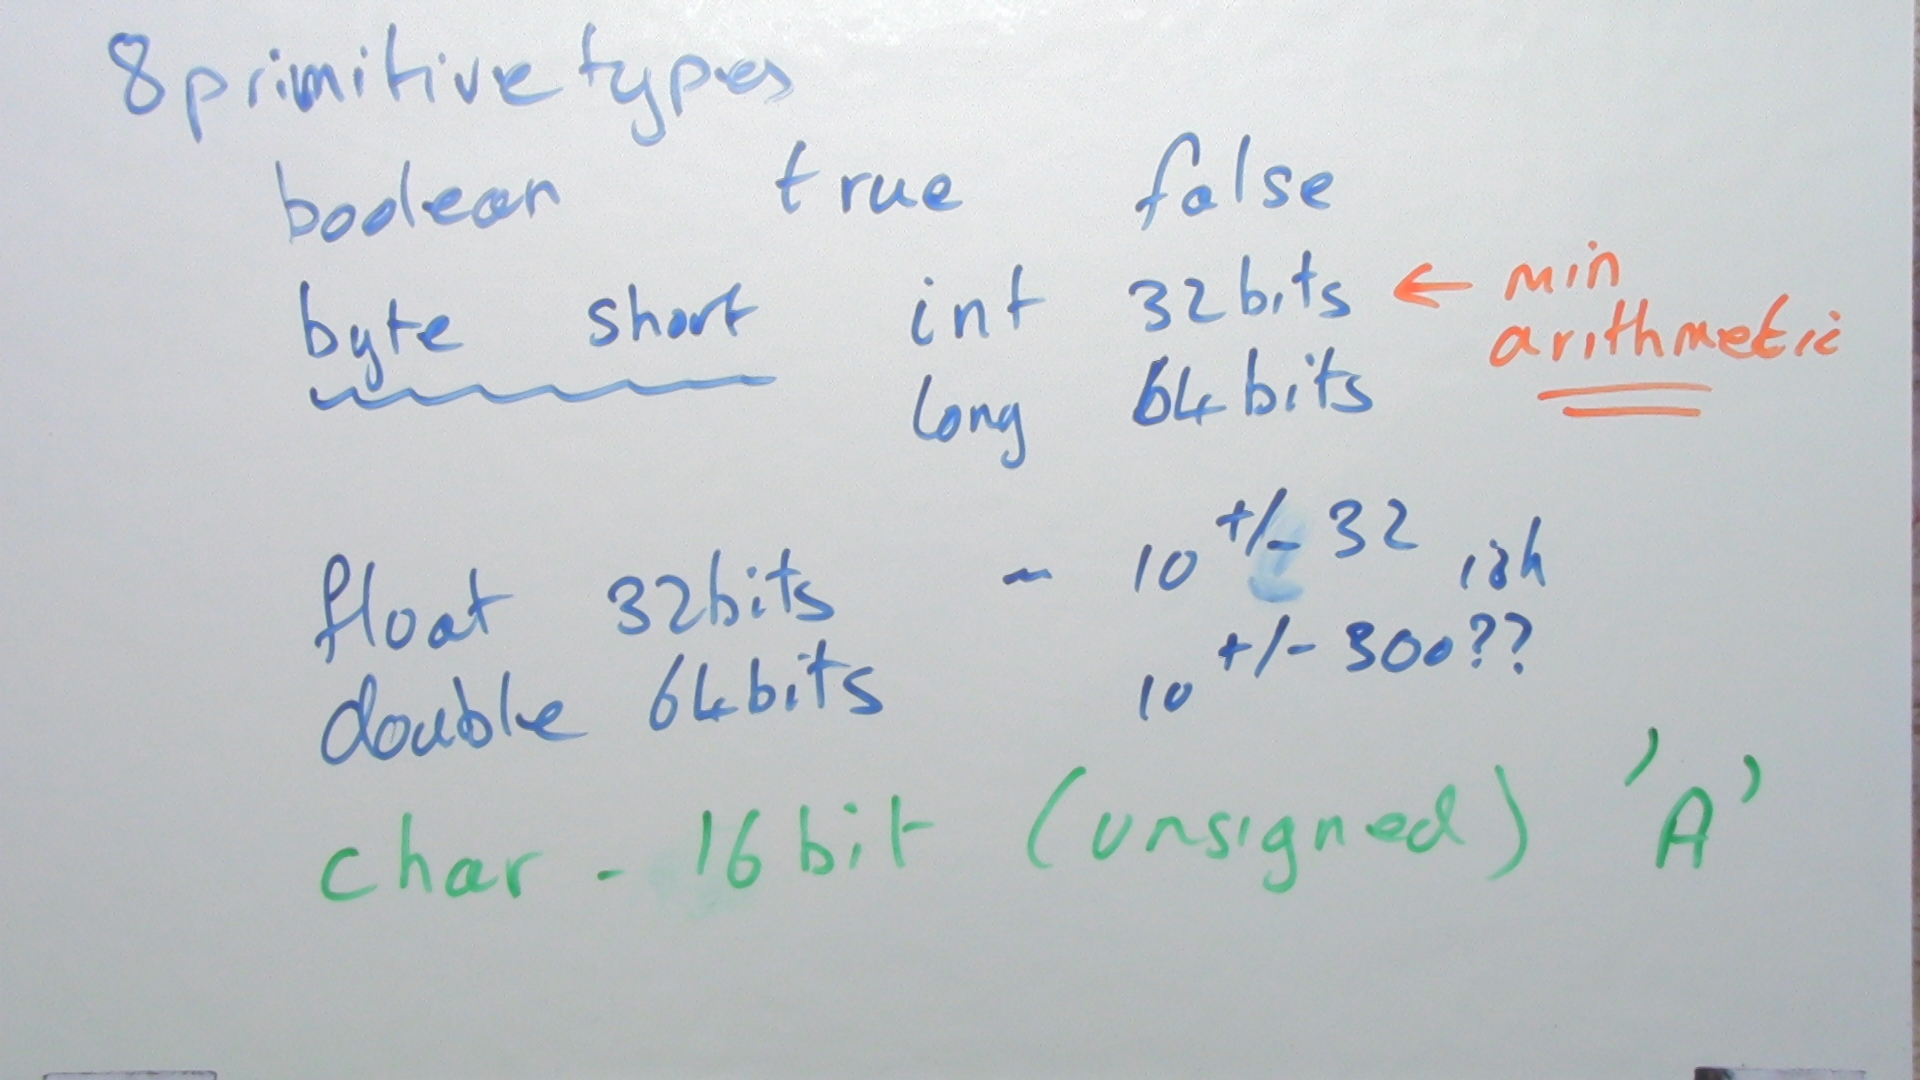 8 primitive types
boolean true false
byte short int 32bits ← min
arithmetic
long 64bits
float 32bits - 10 +/- 32 ish
double 64bits 10 +/- 300??
char - 16 bit (unsigned) 'A'